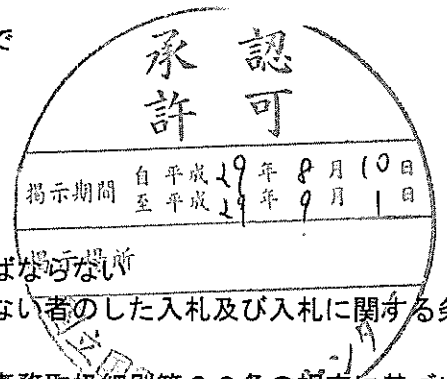 で
承認
許可
掲示期間 自 平成29年8月10日
至 平成29年9月1日
掲示場所
ばならない
ない者のした入札及び入札に関する条